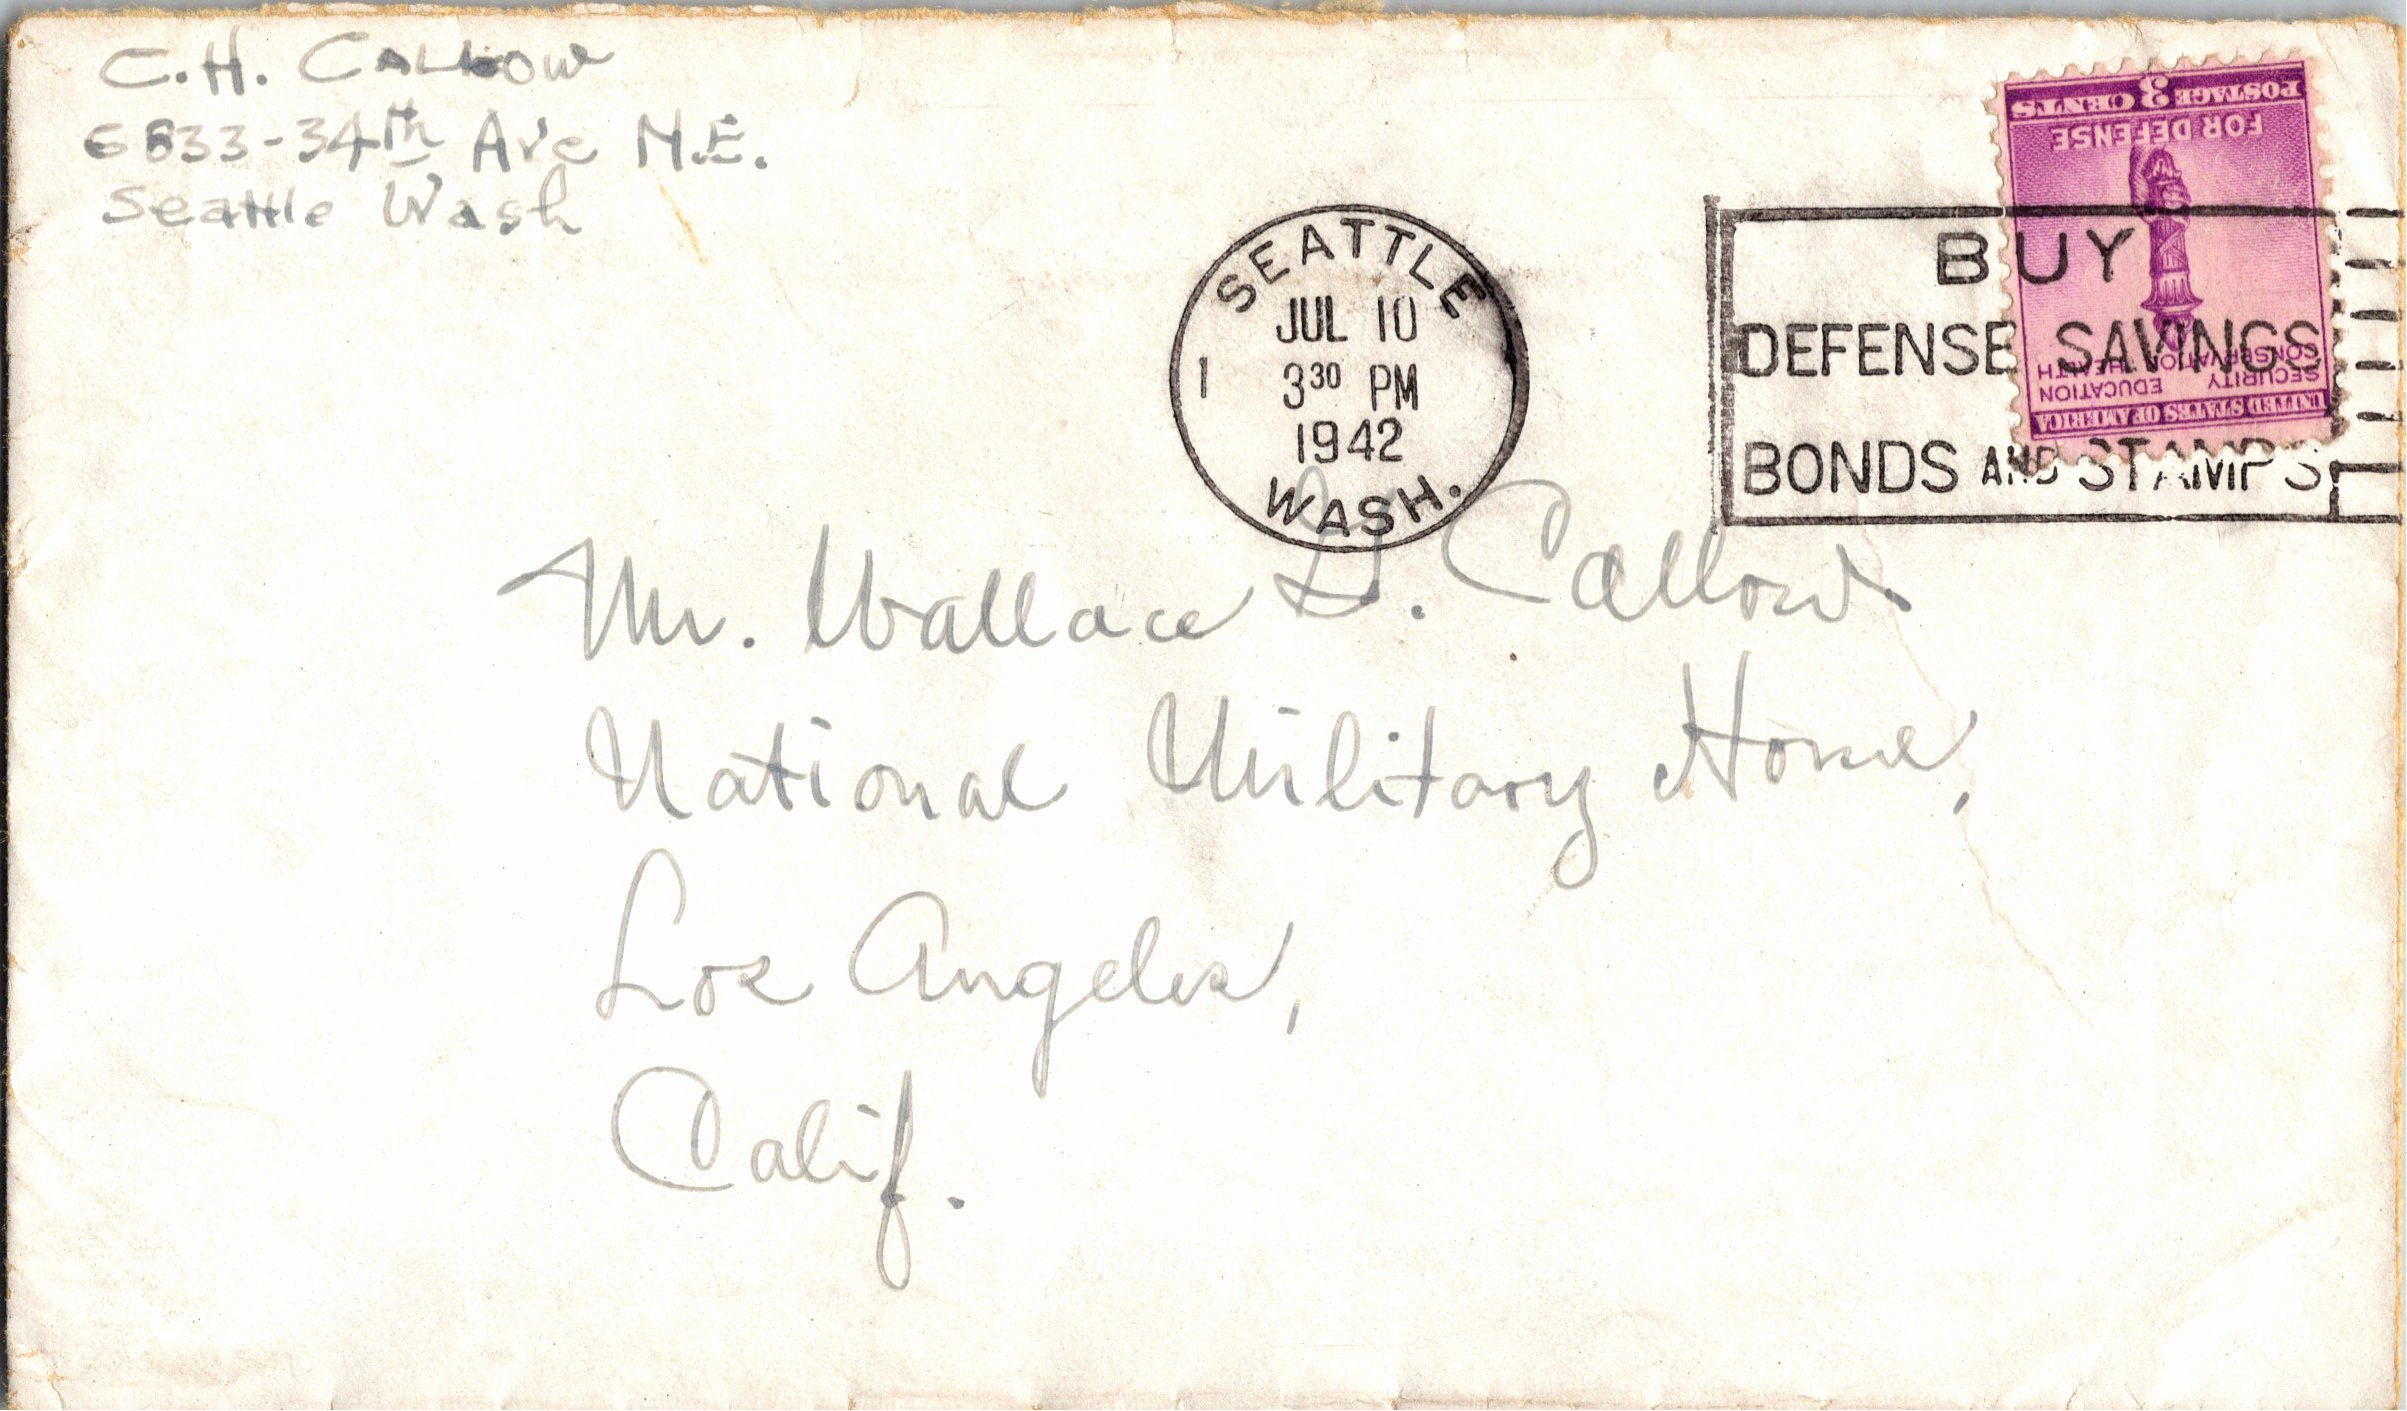 C.H. CALLOW
6833-34th Ave N.E.
Seattle Wash
SEATTLE
JUL 10
1 3 30 PM
1942
WASH.
BUY
DEFENSE SAVINGS
BONDS AND STAMPS
POSTAGE 3 CENTS
FOR DEFENSE
SECURITY EDUCATION
CONSERVATION HEALTH
UNITED STATES OF AMERICA
Mr. Wallace Callow.
National Military Home,
Los Angeles,
Calif.